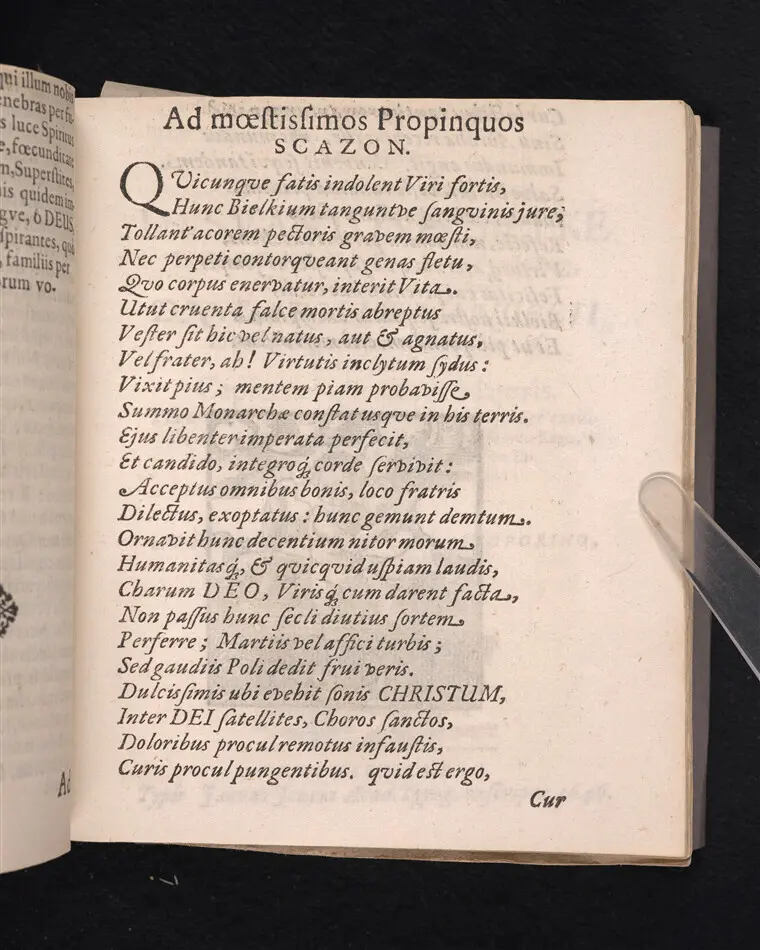 qui illum nobis
enebras per fi-
s luce Spiritus
e, fœcunditate
m, Superſtites,
is quidem im-
gve, ô DEUS,
ſpirantes, qui
, familiis per
rum vo-
Ad
Ad mœſtisſimos Propinquos
SCAZON.
QVicunqve fatis indolent Viri fortis,
Hunc Bielkium tanguntve ſangvinis jure;
Tollant' acorem pectoris gravem mœſti,
Nec perpeti contorqveant genas fletu,
Qvo corpus enervatur, interit Vita.
Utut cruenta falce mortis abreptus
Veſter ſit hic vel natus, aut & agnatus,
Vel frater, ah! Virtutis inclytum ſydus:
Vixit pius; mentem piam probaviſſe,
Summo Monarchæ conſtat usqve in his terris.
Ejus libenter imperata perfecit,
Et candido, integroq́; corde ſervivit:
Acceptus omnibus bonis, loco fratris
Dilectus, exoptatus: hunc gemunt demtum.
Ornavit hunc decentium nitor morum
Humanitasq́;, & qvicqvid uſpiam laudis,
Charum DEO, Virisq́; cum darent facta,
Non paſſus hunc ſecli diutius ſortem
Perferre; Martiis vel affici turbis;
Sed gaudiis Poli dedit frui veris.
Dulcisſimis ubi evehit ſonis CHRISTUM,
Inter DEI ſatellites, Choros ſanctos,
Doloribus procul remotus infauſtis,
Curis procul pungentibus. qvid est ergo,
Cur